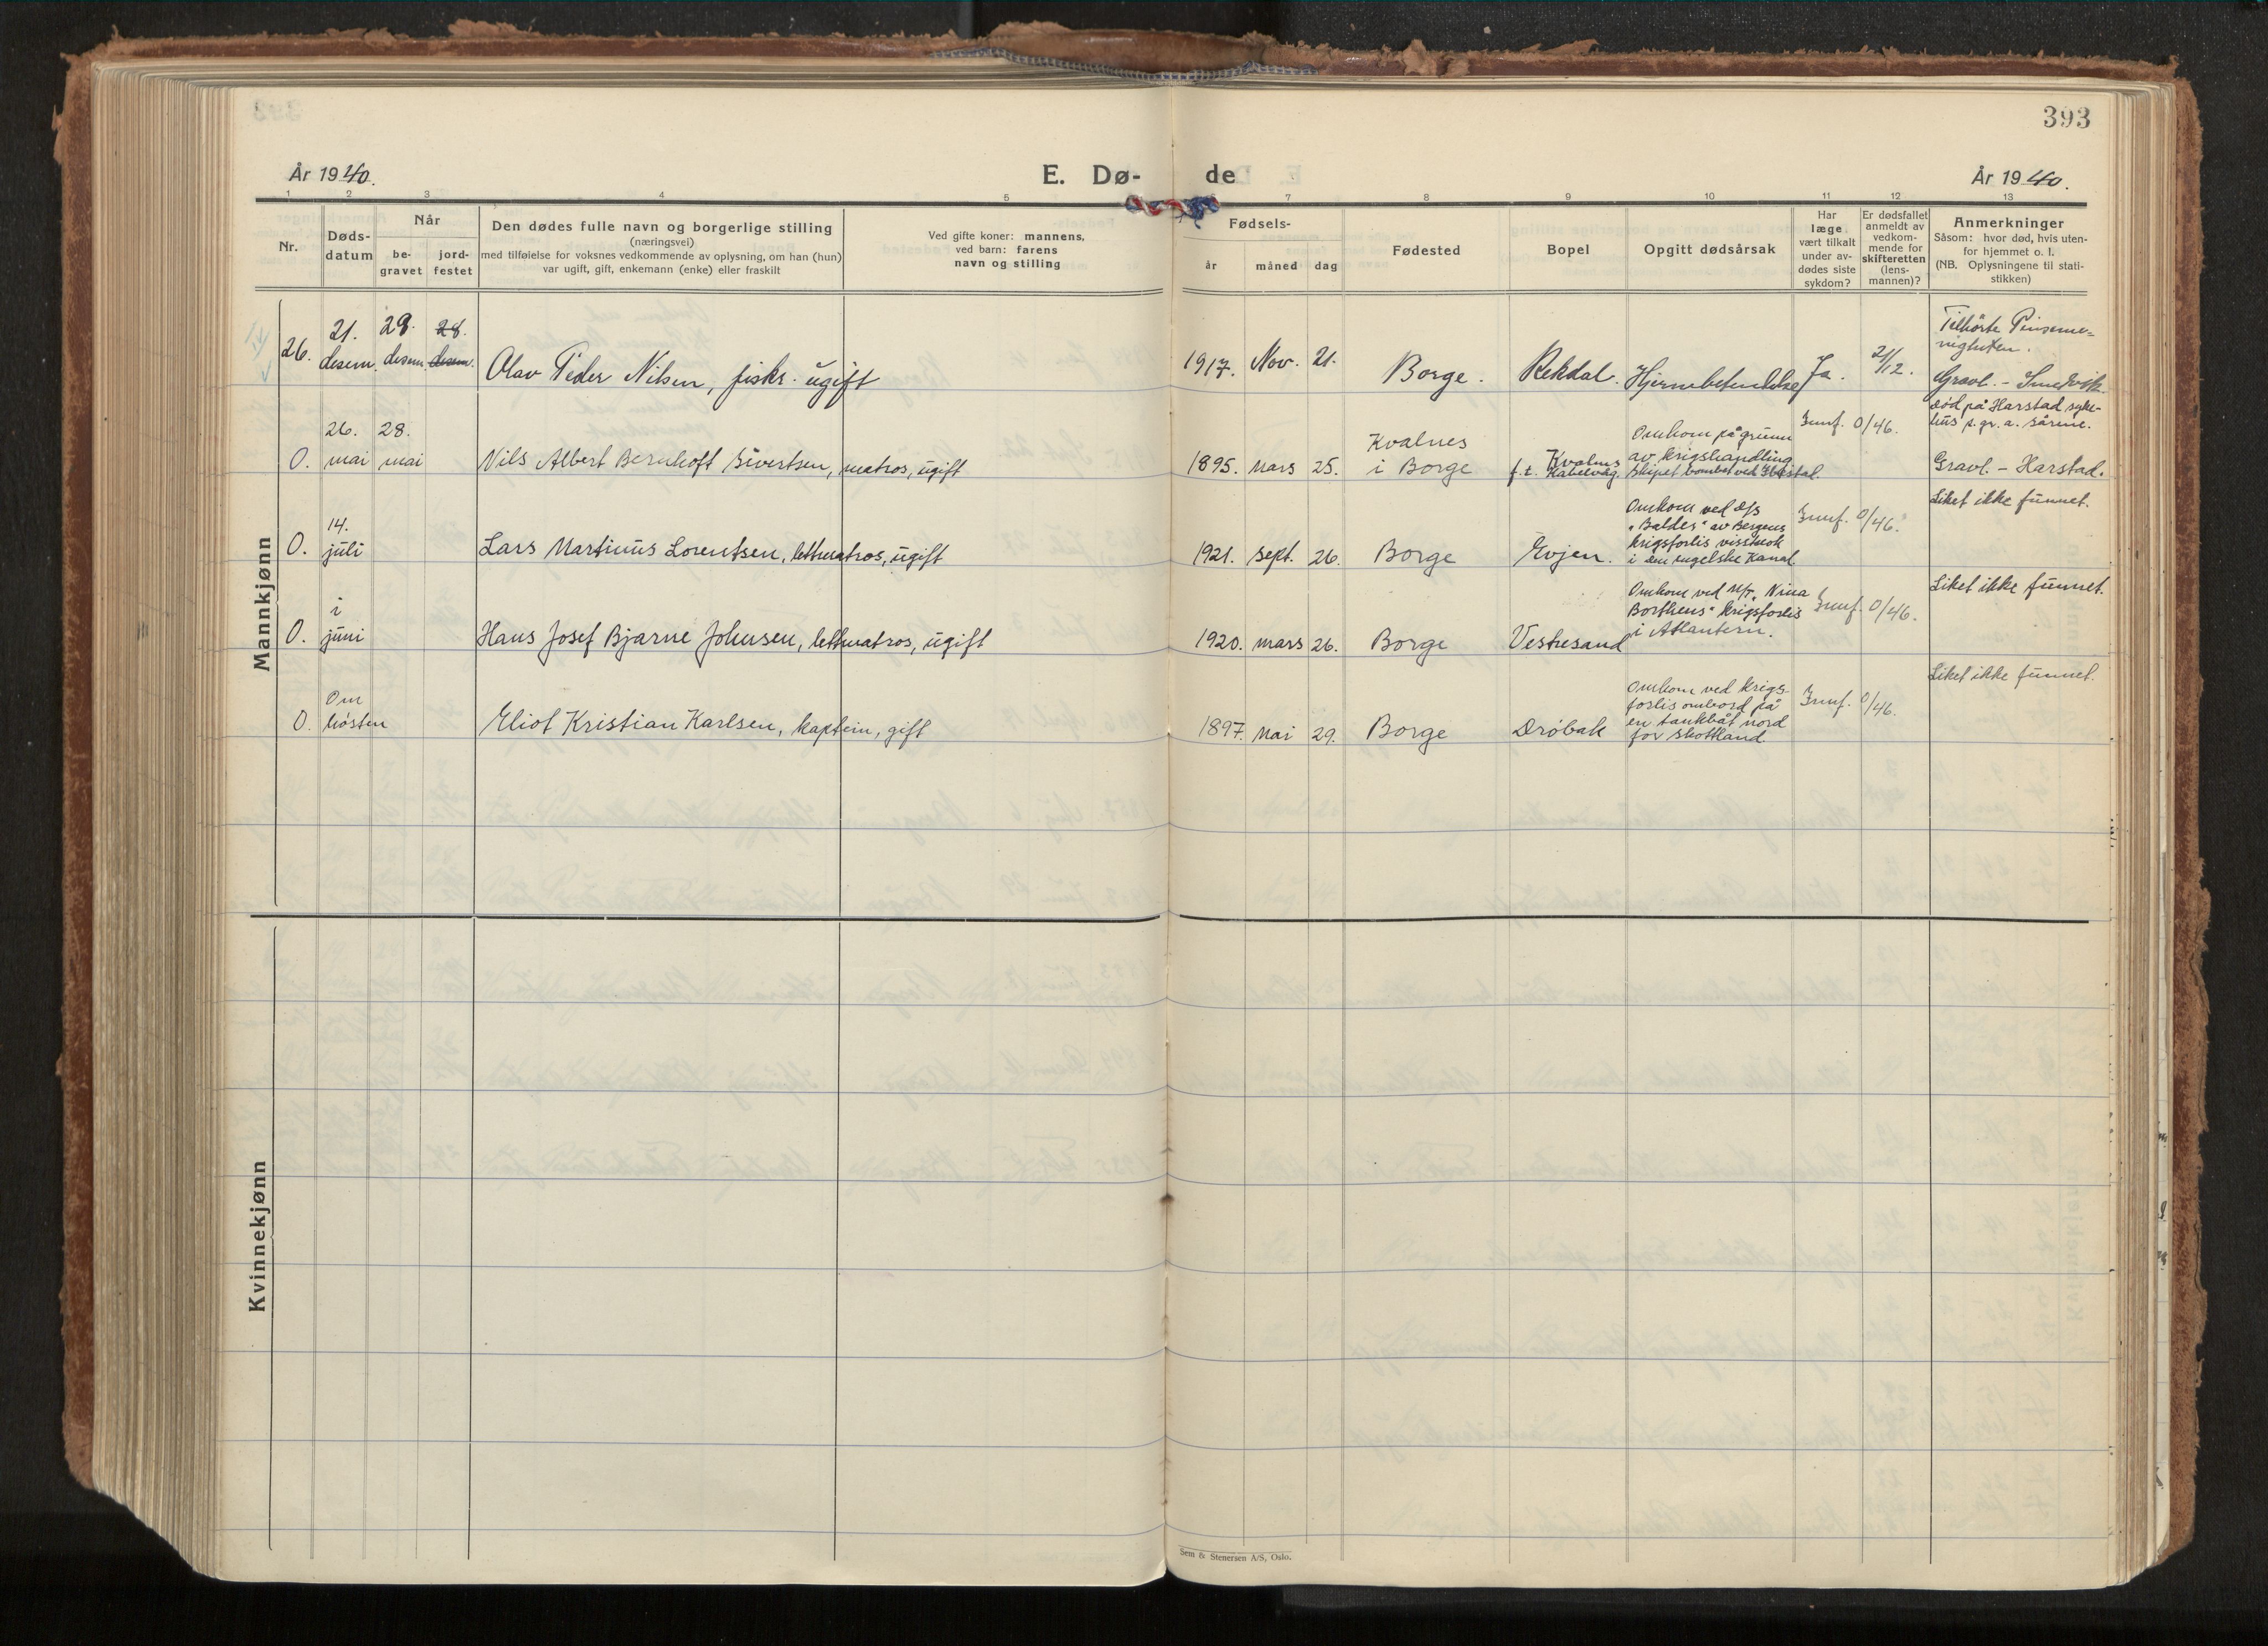 393
År 1940.
E. Dø-
de
År 1940.
1 2 3 4 5 7 8 9 10 11 12 13
Nr.
Døds-
datum
Når
be-
gravet
jord-
festet
Den dødes fulle navn og borgerlige stilling
(næringsvei)
med tilføielse for voksnes vedkommende av oplysning, om han (hun)
var ugift, gift, enkemann (enke) eller fraskilt
Ved gifte koner: mannens,
ved barn: farens
navn og stilling
Fødsels-
år
måned
dag
Fødested
Bopel
Opgitt dødsårsak
Har
læge
vært tilkalt
under av-
dødes siste
sykdom?
Er dødsfallet
anmeldt av
vedkom-
mende for
skifteretten
(lens-
mannen)?
Anmerkninger
Såsom: hvor død, hvis uten-
for hjemmet o. l.
(NB. Oplysningene til stati-
stikken)
Mannkjønn
26.
21.
desem.
29.
desem.
28.
desem.
Olav Peder Nilsen, fiskr. ugift
1917. Nov. 21.
Borge.
Rekdal.
Hjernebetendelse
Ja.
21/12.
Tilhörte Pinseme-
nigheten.
Gravl. - Smedvik.
0.
26.
mai
28.
mai
Nils Albert Bernhoft Sivertsen, matros, ugift
1895. mars 25.
Kvalnes
i Borge
Kvalnes
f.t. Kabelvåg.
Omkom på grunn
av krigshandling
Skipet bombet ved
Imf. 0/46.
död på Harstad syke-
hus p.gr.a. sårene.
Gravl. - Harstad.
0.
14.
juli
Lars Martinus Lorentsen, lettmatros, ugift
1921. sept. 26.
Borge
Evjen.
Omkom ved d/s
"Balder" av Bergens
krigsforlis visstnok
i den engelske Kanal
0/46.
Liket ikke funnet.
0.
i
juni
Hans Josef Bjarne Johnsen, lettmatros, ugift
1920. mars 26.
Borge
Vestresand
Omkom ved M/T. "Nina
Borthens" krigsforlis
i Atlantern.
0/46.
Liket ikke funnet.
0.
Om
hösten
Eliot Kristian Karlsen, kaptein, gift
1897. Mai 29.
Borge
Dröbak
Omkom ved krigs-
forlis ombord på
en tankbåt nord
for Skottland.
0/46.
Liket ikke funnet.
Kvinnekjønn
Sem & Stenersen A/S, Oslo.